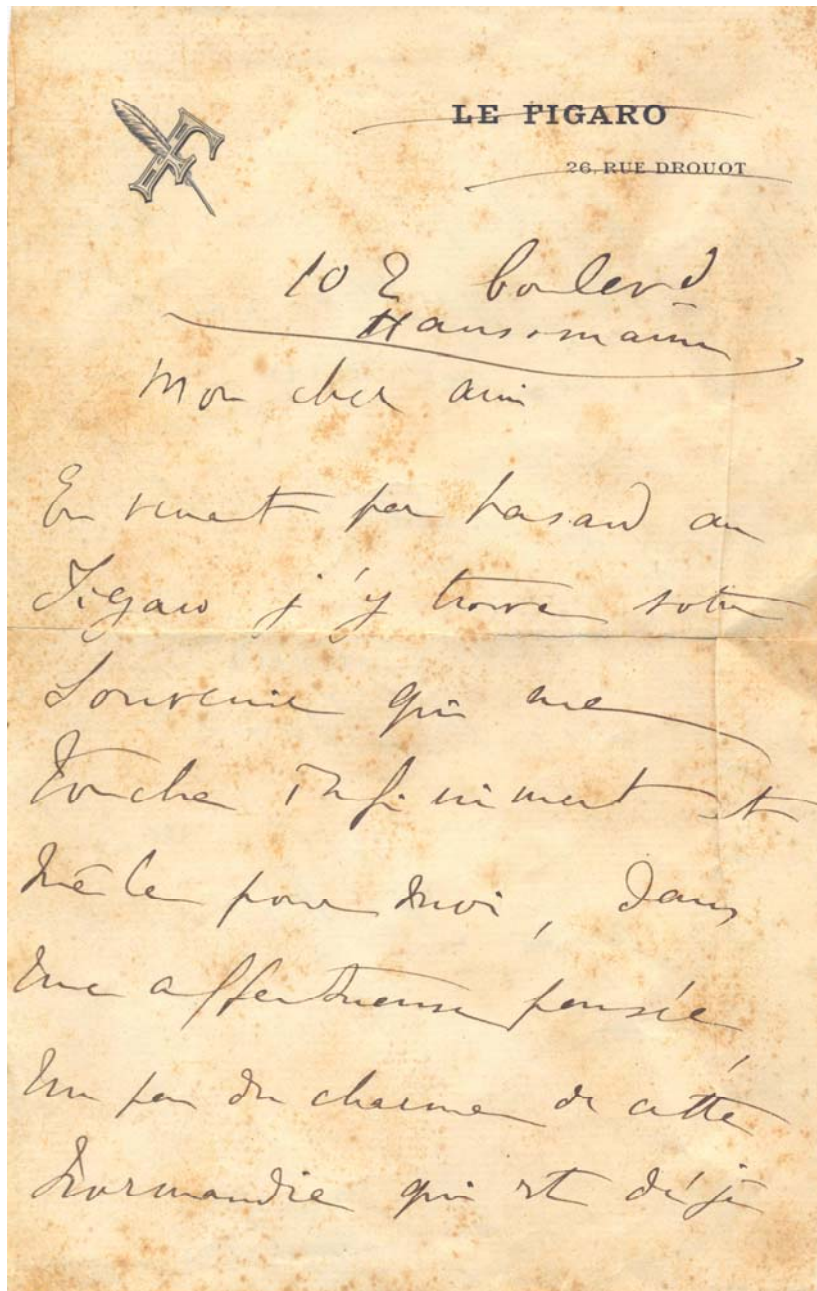 LE FIGARO
26, RUE DROUOT
102 boulevd
Haussmann
Mon cher ami
En venant par hasard au
Figaro j'y trouve votre
souvenir qui me
touche infiniment et
mêle pour moi, dans
une affectueuse pensée,
un peu du charme de cette
Normandie qui est déjà